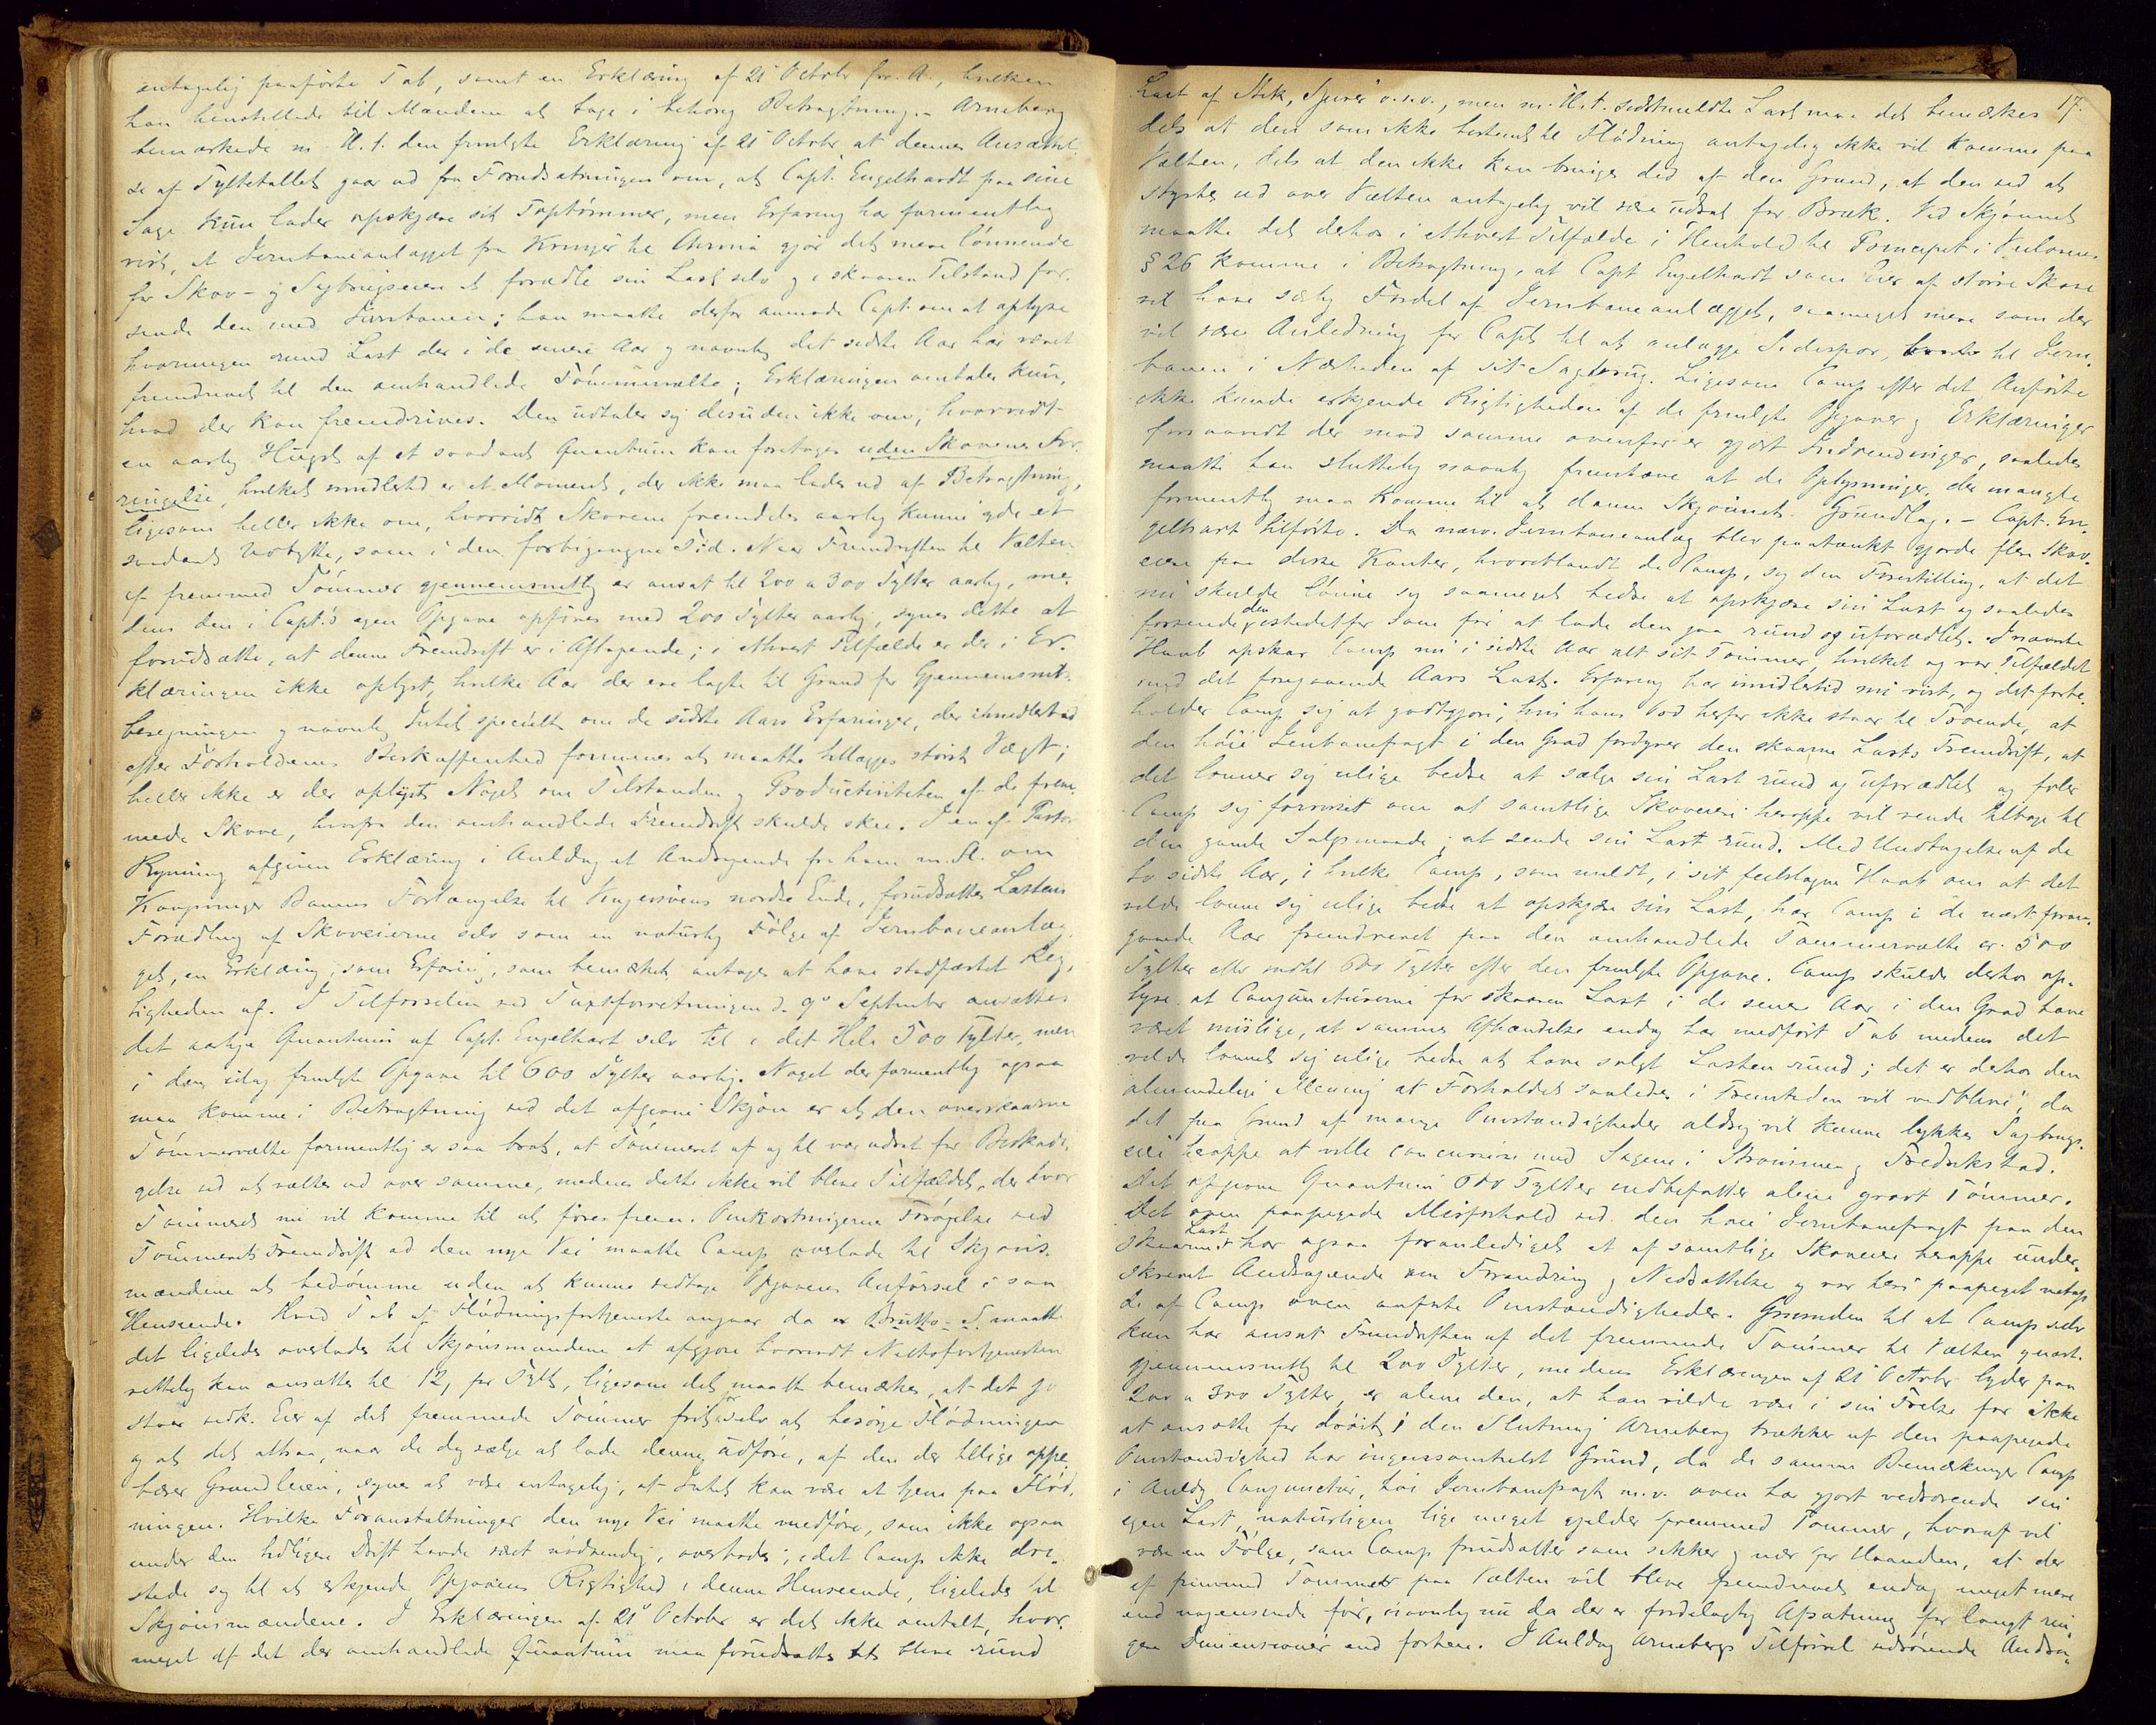 antagelig paaførte Tab, samt en Erklæring af 21 Octobr for. A., hvilken
han henstillede til Mændene at tage i behørig Betragtning. - Arneberg
bemærkede m. H. t. den fremlagte Erklæring af 21 Octobr at dennes Ansættel-
se af Tyltetallet gaar ud fra Forudsætningen om, at Capt. Engelhardt paa sine
Sage kun lader opskjære sit Toptømmer, men Erfaring har formentlig
vist, at Jernbaneanlægget fra Kongsv. til Charl. gjør det mere lønnende
for Skov- og Sagbrugseiere at forædle sin Last selv og i skaaren Tilstand for-
sende den med Jernbanen; han maatte derfor anmode Capt. om at oplyse
hvormegen rund Last der i de senere Aar og navnlig det sidste Aar har været
fremdrevet til den omhandlede Tømmervælte; Erklæringen omtaler kun,
hvad der kan fremdrives. Den udtaler sig desuden ikke om, hvorvidt
en aarlig Hugst af et saadant Quantum kan foretages uden Skovenes For-
ringelse, hvilket imidlertid er et Moment, der ikke maa lades ud af Betragtning,
ligesom heller ikke om, hvorvidt Skovene fremdeles aarlig kunne yde et
saadant Udbytte, som i den forbigangne Tid. Naar Fremdriften til Vælten
af fremmed Tømmer gjennemsnitlig er ansat til 200 a 300 Tylter aarlig, me-
dens den i Capt.s egen Opgave opføres med 200 Tylter aarlig, synes dette at
forudsætte, at denne Fremdrift er i Aftagende; i ethvert Tilfælde er der i Er-
klæringen ikke oplyst, hvilke Aar der ere lagte til Grund for Gjennemsnits-
beregningen og navnlig Intet specielt om de sidste Aars Erfaringer, der imidlertid
efter Forholdenes Beskaffenhed formenes at maatte tillægges størst Vægt;
heller ikke er der oplyst Noget om Tilstanden og Productiviteten af de frem-
mede Skove, hvorfra den omhandlede Fremdrift skulde skee. I en af Pastor
Rynning afgiven Erklæring i Anledng. et Andragende fra ham m. Fl. om
Kongsvinger Banens Forlængelse til Vingersøens nordre Ende, forudsættes Lastens
Forædling af Skoveierne selv som en naturlig Følge af Jernbaneanlæg-
get, en Erklæring, som Erfaring, som bemærket, antages at have stadfæstet Rig-
tigheden af. I Tilførselen ved Taxtforretningen d. 9de September ansættes
det aarlige Quantum af Capt. Engelhart selv til i det Hele 500 Tylter, men
i den idag fremlagte Opgave til 600 Tylter aarlig. Noget der formentlig ogsaa
maa komme i Betragtning ved det afgivne Skjøn er at den overskaarne
Tømmervælte formentlig er saa brat, at Tømmeret af og til var udsat for Beskadi-
gelse ved at væltes ud over samme, medens dette ikke vil blive Tilfældet, der hvor
Tømmeret nu vil komme til at føres frem. Omkostningernes Forøgelse ved
Tømmerets Fremdrift ad den nye Vei maatte Comp. overlade til Skjøns-
mændene at bedømme uden at kunne vedtage Opgavens Anførsel i saa
Henseende. Hvad Tab af Flødningsfortjeneste angaar da er Brutto- S. maatte
det ligeledes overlades til Skjønsmændene at afgjøre hvorvidt Nettofortjenesten
rettelig kan ansættes til 12 pr Tylt, ligesom det maatte bemærkes, at det jo
staar vedk. Eier af det fremmede Tømmer frit for selv at besørge Flødningen
og at det altsaa, naar de dog vælge at lade denne udføre, af den der tillige oppe-
bærer Grundleien, synes at være antagelig, at Intet kan være at tjene paa Flød-
ningen. Hvilke Foranstaltninger den nye Vei maatte medføre, som ikke ogsaa
under den tidligere Drift havde været nødvendig, overlodes, idet Comp. ikke dri-
stede sig til at erkjende Opgavens Rigtighed i denne Henseende, ligeledes til
Skjønsmændene. I Erklæringen af 21 October er det ikke omtalt, hvor-
meget af det der omhandlede Quantum maa forudsættes at blive rund
17.
Last af Stok, Spirer o.s.v., men m. H. t. sidstmeldte Last maa det bemærkes
dels at den som ikke bestemt til Flødning antagelig ikke vil komme paa
Vælten, dels at den ikke kan bringes did af den Grund, at den ved at
styrtes ud over Vælten antagelig vil være udsat for Bræk. Ved Skjønnet
maatte det derhos i ethvert Tilfælde i Henhold til Princippet i Veilovens
§ 26 komme i Betragtning, at Capt. Engelhardt som Eier af større Skove
vil have særlig Fordel af Jernbaneanlægget, saameget mere som der
vil være Anledning for Capt. til at anlægge Sidespor til Jern-
banen i Nærheden af sit Sagbrug. Ligesom Comp. efter det Anførte
ikke kunde erkjende Rigtigheden af de fremlagte Opgaver og Erklæringer
forsaavidt der mod samme ovenfor er gjort Indvendinger, saaledes
maatte han sluttelig navnlig fremhæve at de Oplysninger, der mangle
formentlig maa komme til at danne Skjønnets Grundlag. - Capt. En-
gelhart tilførte. Da nærv. Jernbaneanlæg blev paatænkt gjorde flere Skov-
eiere paa disse Kanter, hvoriblandt de Comp. sig den Forestilling, at det
nu skulde lønne sig saameget bedre at opskjære sin Last og saaledes
forsende den istedetfor som før at lade den gaa rund og uforædlet. I nævnte
Haab opskar Comp. nu i sidste Aar alt sit Tømmer, hvilket og var Tilfældet
med det foregaaende Aars Last. Erfaring har imidlertid nu vist, og det forbe-
holder Comp. sig at godtgjøre, hvis hans Ord herfor ikke staar til Troende, at
den høie Jernbanefragt i den Grad fordyrer den skaarne Lasts Fremdrift, at
det lønner sig ulige bedre at sælge sin Last rund og uforædlet og føler
Comp. sig forvisset om at samtlige Skoveiere heroppe vil vende tilbage til
den gamle Salgsmaade, at sende sin Last rund. Med Undtagelse af de
to sidste Aar, i hvilke Comp., som meldt, i sit feilslagne Haab om at det
vilde lønne sig ulige bedre at opskjære sin Last, har Comp. i de næst foran-
gaaende Aar fremdrevet paa den omhandlede Tømmervælte er. 500
Tylter eller indtil 600 Tylter efter den fremlagte Opgave. Comp. skulde derhos op-
lyse at Conjuncturerne for skaaren Last i de senere Aar i den Grad have
været mislige, at sammes Afhændelse endog har medført Tab medens det
vilde lønnet sig ulige bedre at have solgt Lasten rund; det er derhos den
almindelige Mening at Forholdet saaledes i Fremtiden vil vedblive, da
det paa Grund af mange Omstændigheder aldrig vil kunne lykkes Sagbrugs-
eiere heroppe at ville concurrere med Sagene i Strømmen og Fredrikstad.
Det opgivne Quantum 600 Tylter indbefatter alene grovt Tømmer.
Det oven paapegede Misforhold ved den høie Jernbanefragt paa den
skaarne Last har ogsaa foranlediget et af samtlige Skoveiere heroppe under-
skrevet Andragende om Forandring og Nedsættelse og var heri paapeget netop
de af Comp. oven anførte Omstændigheder. Grunden til at Comp. selv
kun har ansat Fremdriften af det fremmede Tømmer til Vælten quæst.
gjennemsnitlig til 200 Tylter, medens Erklæringen af 21 Octobr lyder paa
200 a 300 Tylter, er alene den, at han vilde være i sin Frelse for ikke
at ansætte for drøit; den Slutning Arneberg trækker af den paapegede
Omstændighed har ingensomhelst Grund, da de samme Bemærkninger Comp.
i Anledg. Conjunctur, høi Jernbanefragt m.v. oven har gjort vedrørende sin
egen Last, naturligen lige meget gjælder fremmed Tømmer, hvoraf vil
være en Følge, som Comp. forudsætter som sikker og nær for Haanden, at der
af fremmed Tømmer paa Vælten vil blive fremdrevet endog meget mere
end nogensinde før, navnlig nu da der er fordelagtig Afsætning for langt rin-
gere Dimensioner end forhen. I Anldng. Arnebergs Tilførsel vedrørende Andra-